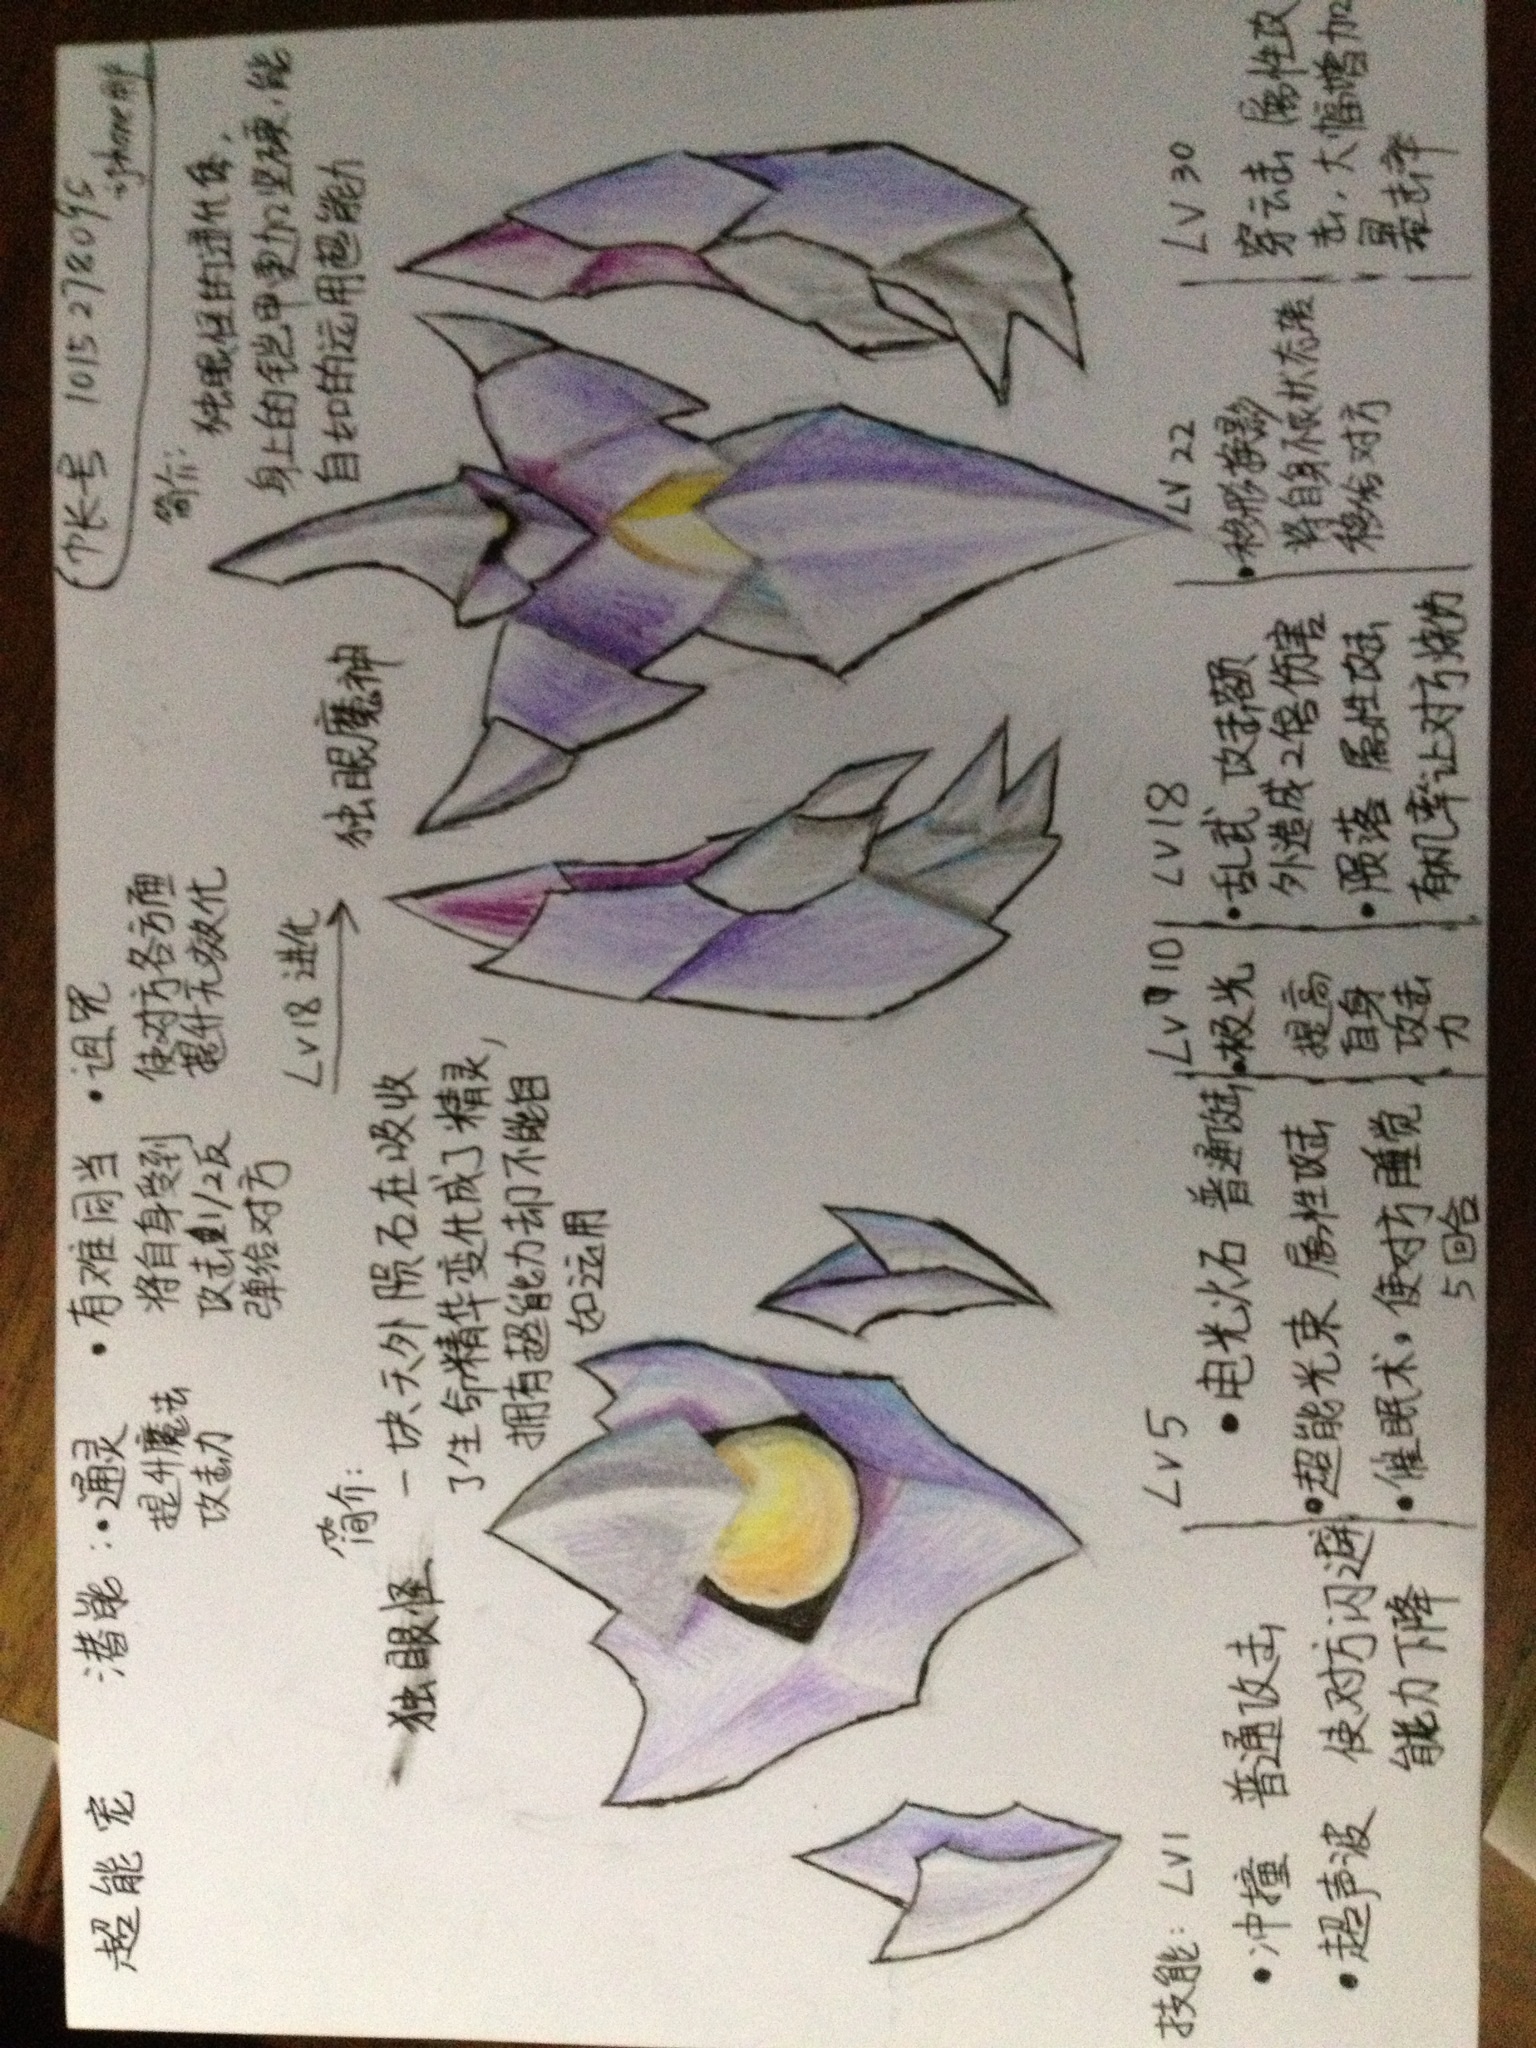 超能宠
潜能:
•通灵
提升魔法
攻击力
•有难同当
将自身受到
攻击1/2反
弹给对方
•诅咒
使对方各方面
提升无效化
帐号 1015278095
iphone
独眼怪
简介:
一块天外陨石在吸收
了生命精华变化成了精灵,
拥有超能力却不能自
如运用
Lv18 进化
独眼魔神
简介:
独眼怪的进化体,
身上的铠甲更加坚硬,能
自如的运用超能力
技能: LV1
•冲撞 普通攻击
•超声波 使对方闪避
能力下降
LV5
•电光火石 普通攻击
•超能光束 属性攻击
•催眠术, 使对方睡觉
5回合
Lv 10
•极光
提高
自身
攻击
力
LV18
•乱武 攻击额
外造成2倍伤害
•陨落 属性攻击
有机率让对方烧伤
LV 22
•移形换影
将自身不良状态转
移给对方
LV 30
穿云击 属性攻
击, 大幅增加
暴击率